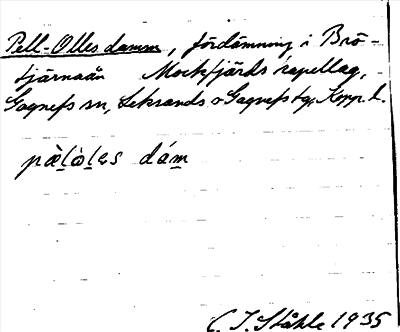 Pell-Olles damm, fördämning i Brö-
tjärnaån Mockfjärds kapellag,
Gagnefs sn, Leksands o Gagnefs tg, Kopp. l.
pæ̀lòles dám
C. I. Ståhle 1935